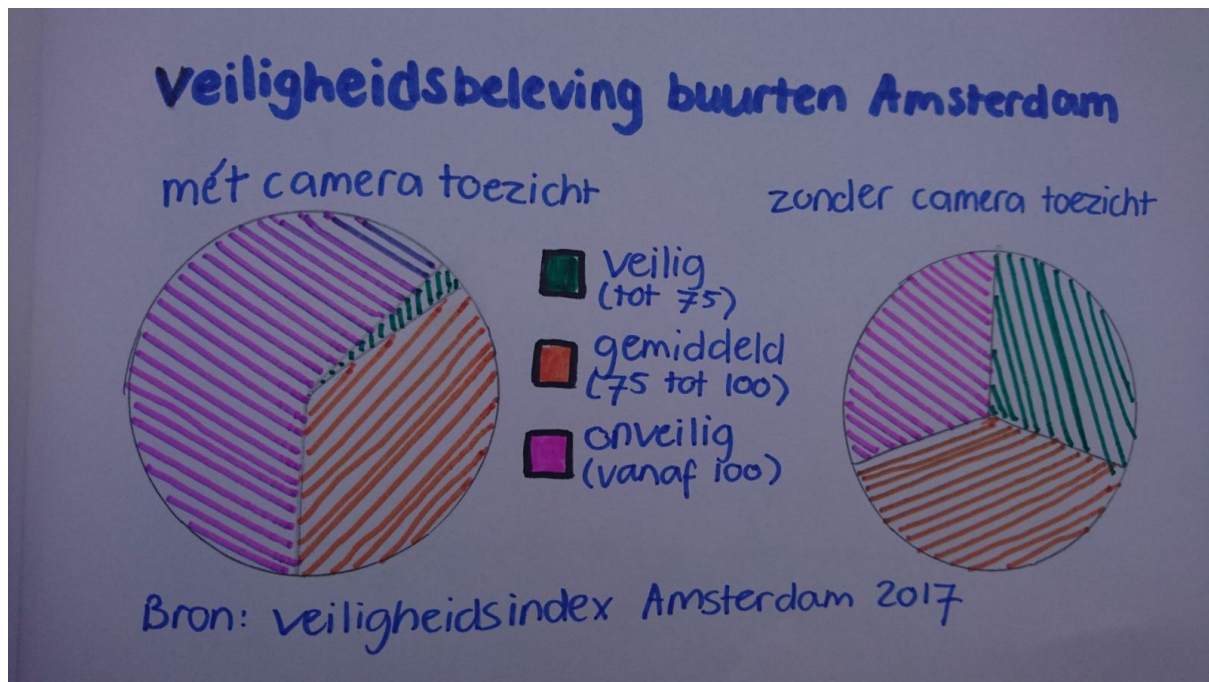 Veiligheidsbeleving buurten Amsterdam
mét camera toezicht
zonder camera toezicht
veilig
(tot 75)
gemiddeld
(75 tot 100)
onveilig
(vanaf 100)
Bron: veiligheidsindex Amsterdam 2017